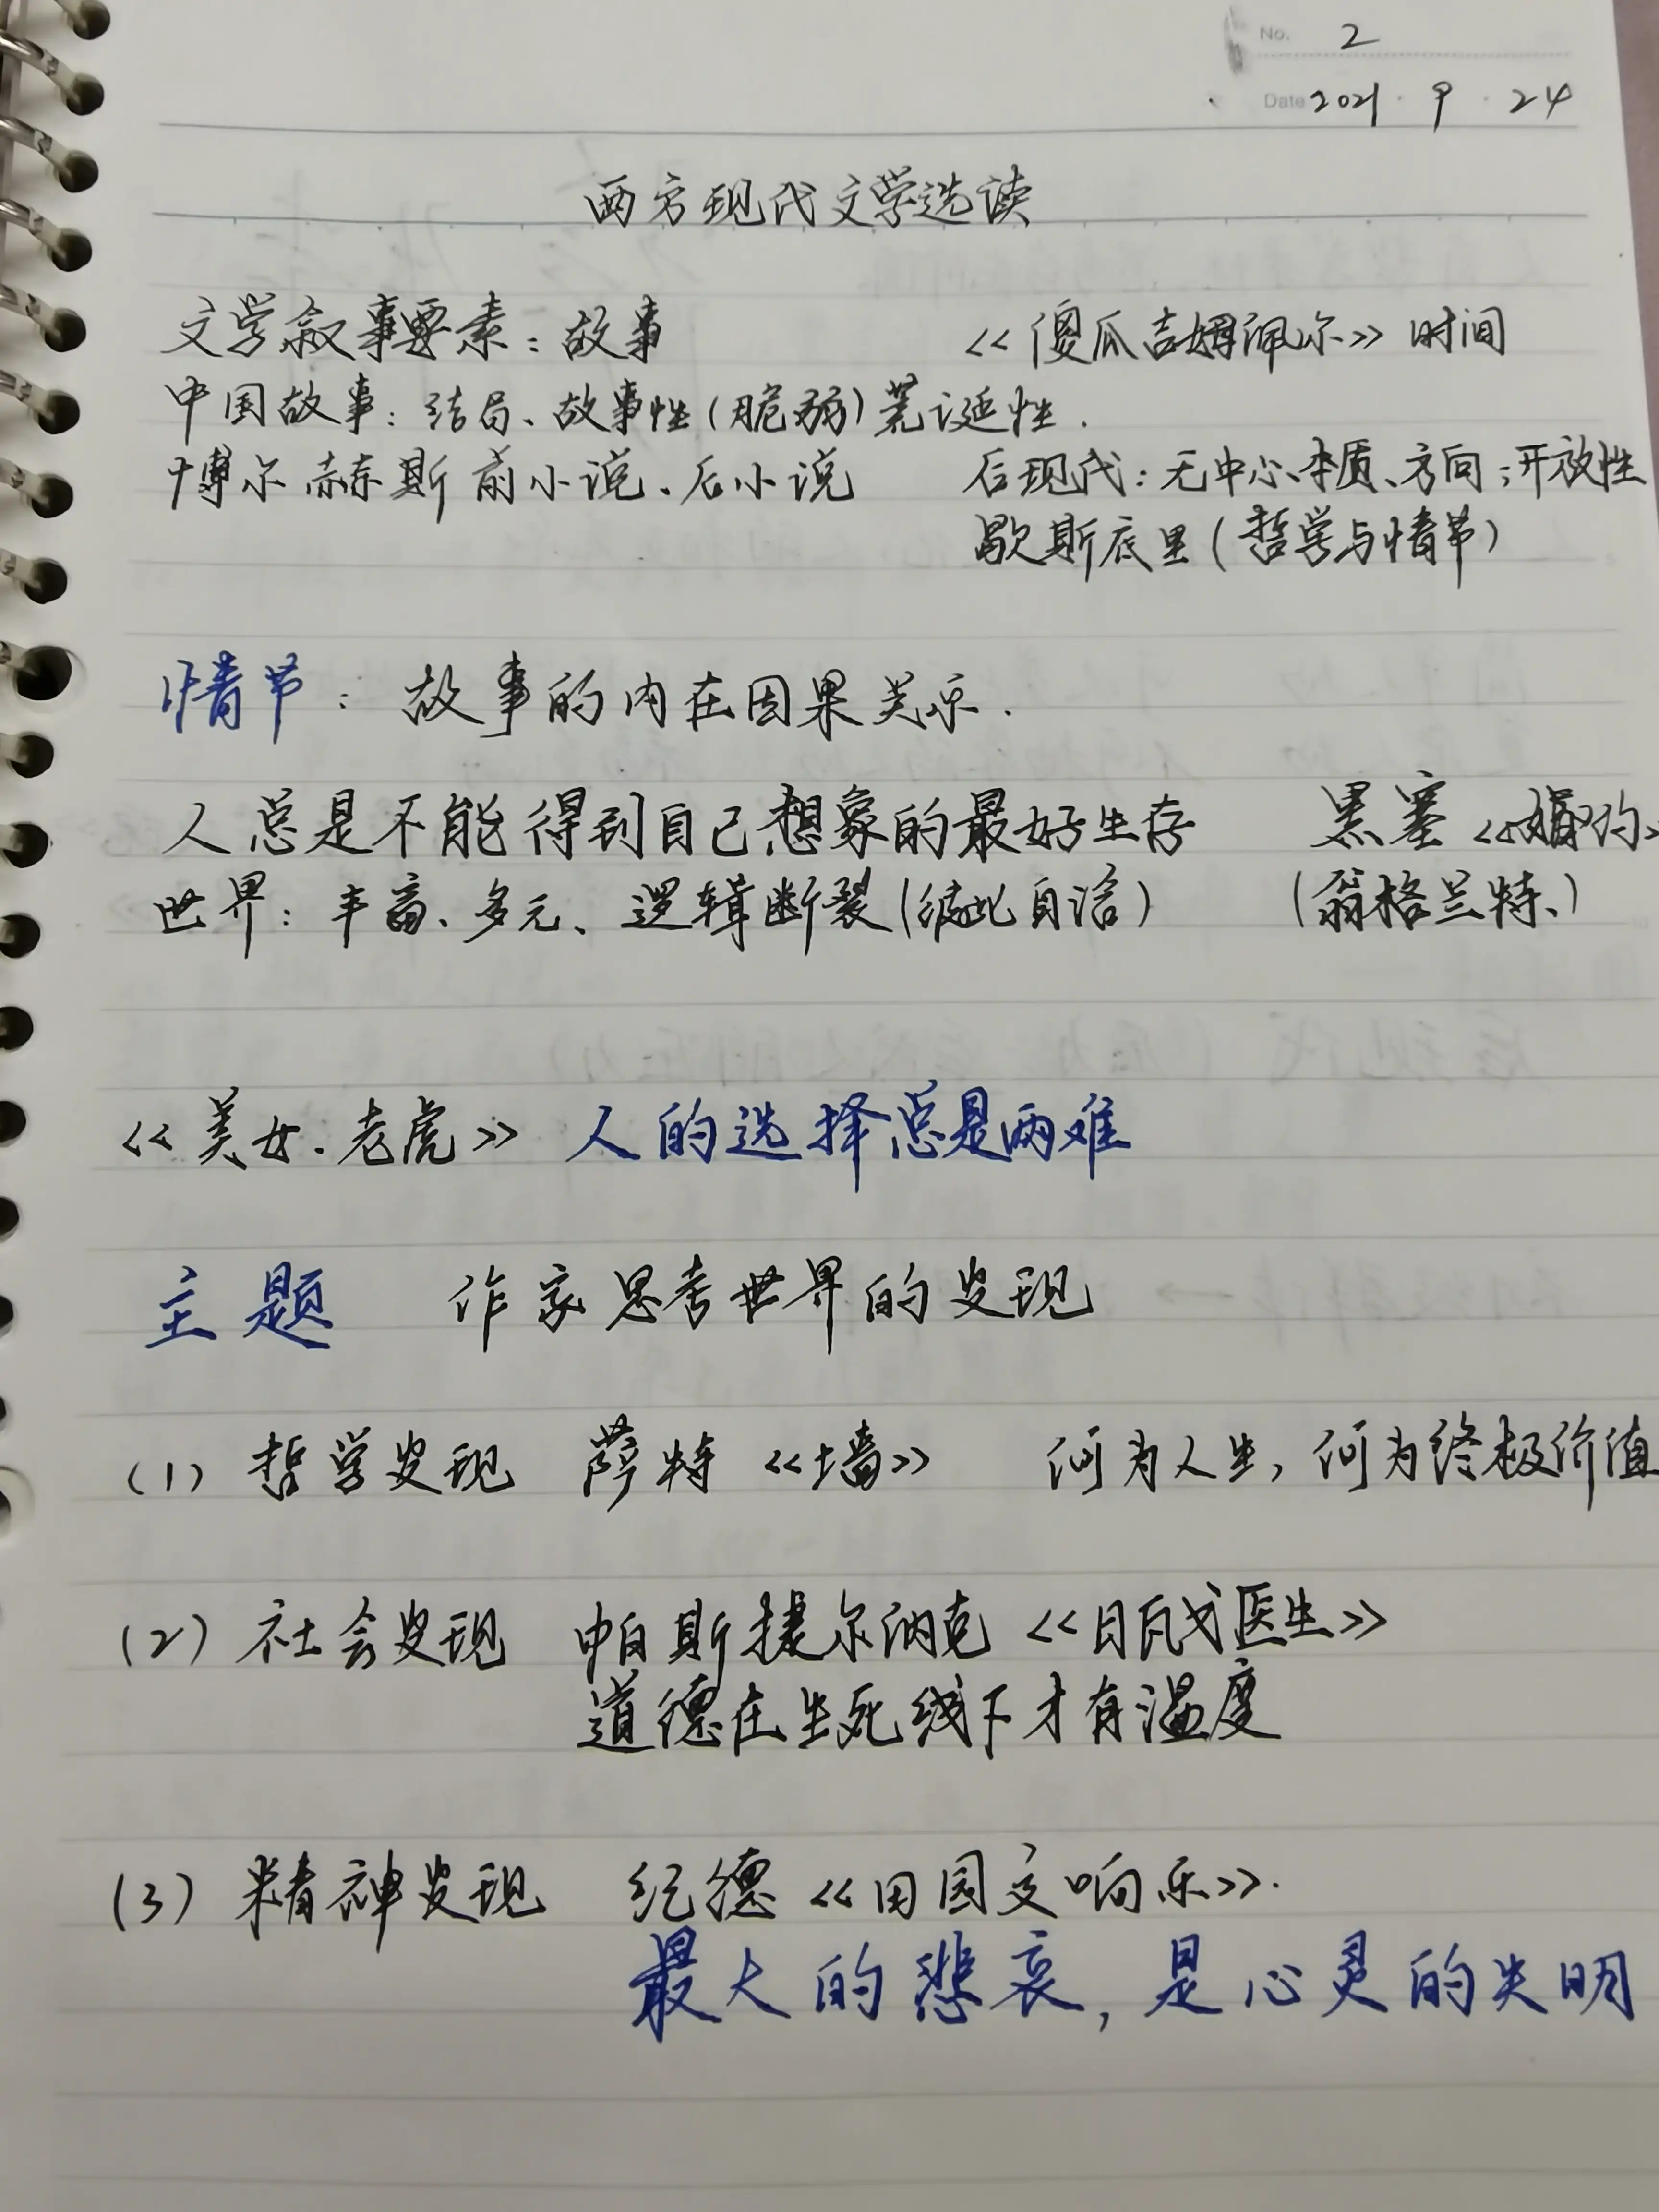 No. 2
Date 2021 · 9 · 24
西方现代文学选读
文学叙事要素：故事 《傻瓜吉姆佩尔》时间
中国故事：结局、故事性（脆弱）荒诞性.
博尔赫斯 前小说、后小说 后现代：无中心、本质、方向；开放性
歇斯底里（哲学与情节）
情节：故事的内在因果关系.
人总是不能得到自己想象的最好生存 黑塞《婚约》
世界：丰富、多元、逻辑断裂（彼此自洽） （翁格兰特、）
《美女.老虎》人的选择总是两难
主题 作家思考世界的发现
（1）哲学发现 萨特《墙》 何为人生，何为终极价值
（2）社会发现 帕斯捷尔纳克《日瓦戈医生》
道德在生死线下才有温度
（3）精神发现 纪德《田园交响乐》.
最大的悲哀，是心灵的失明